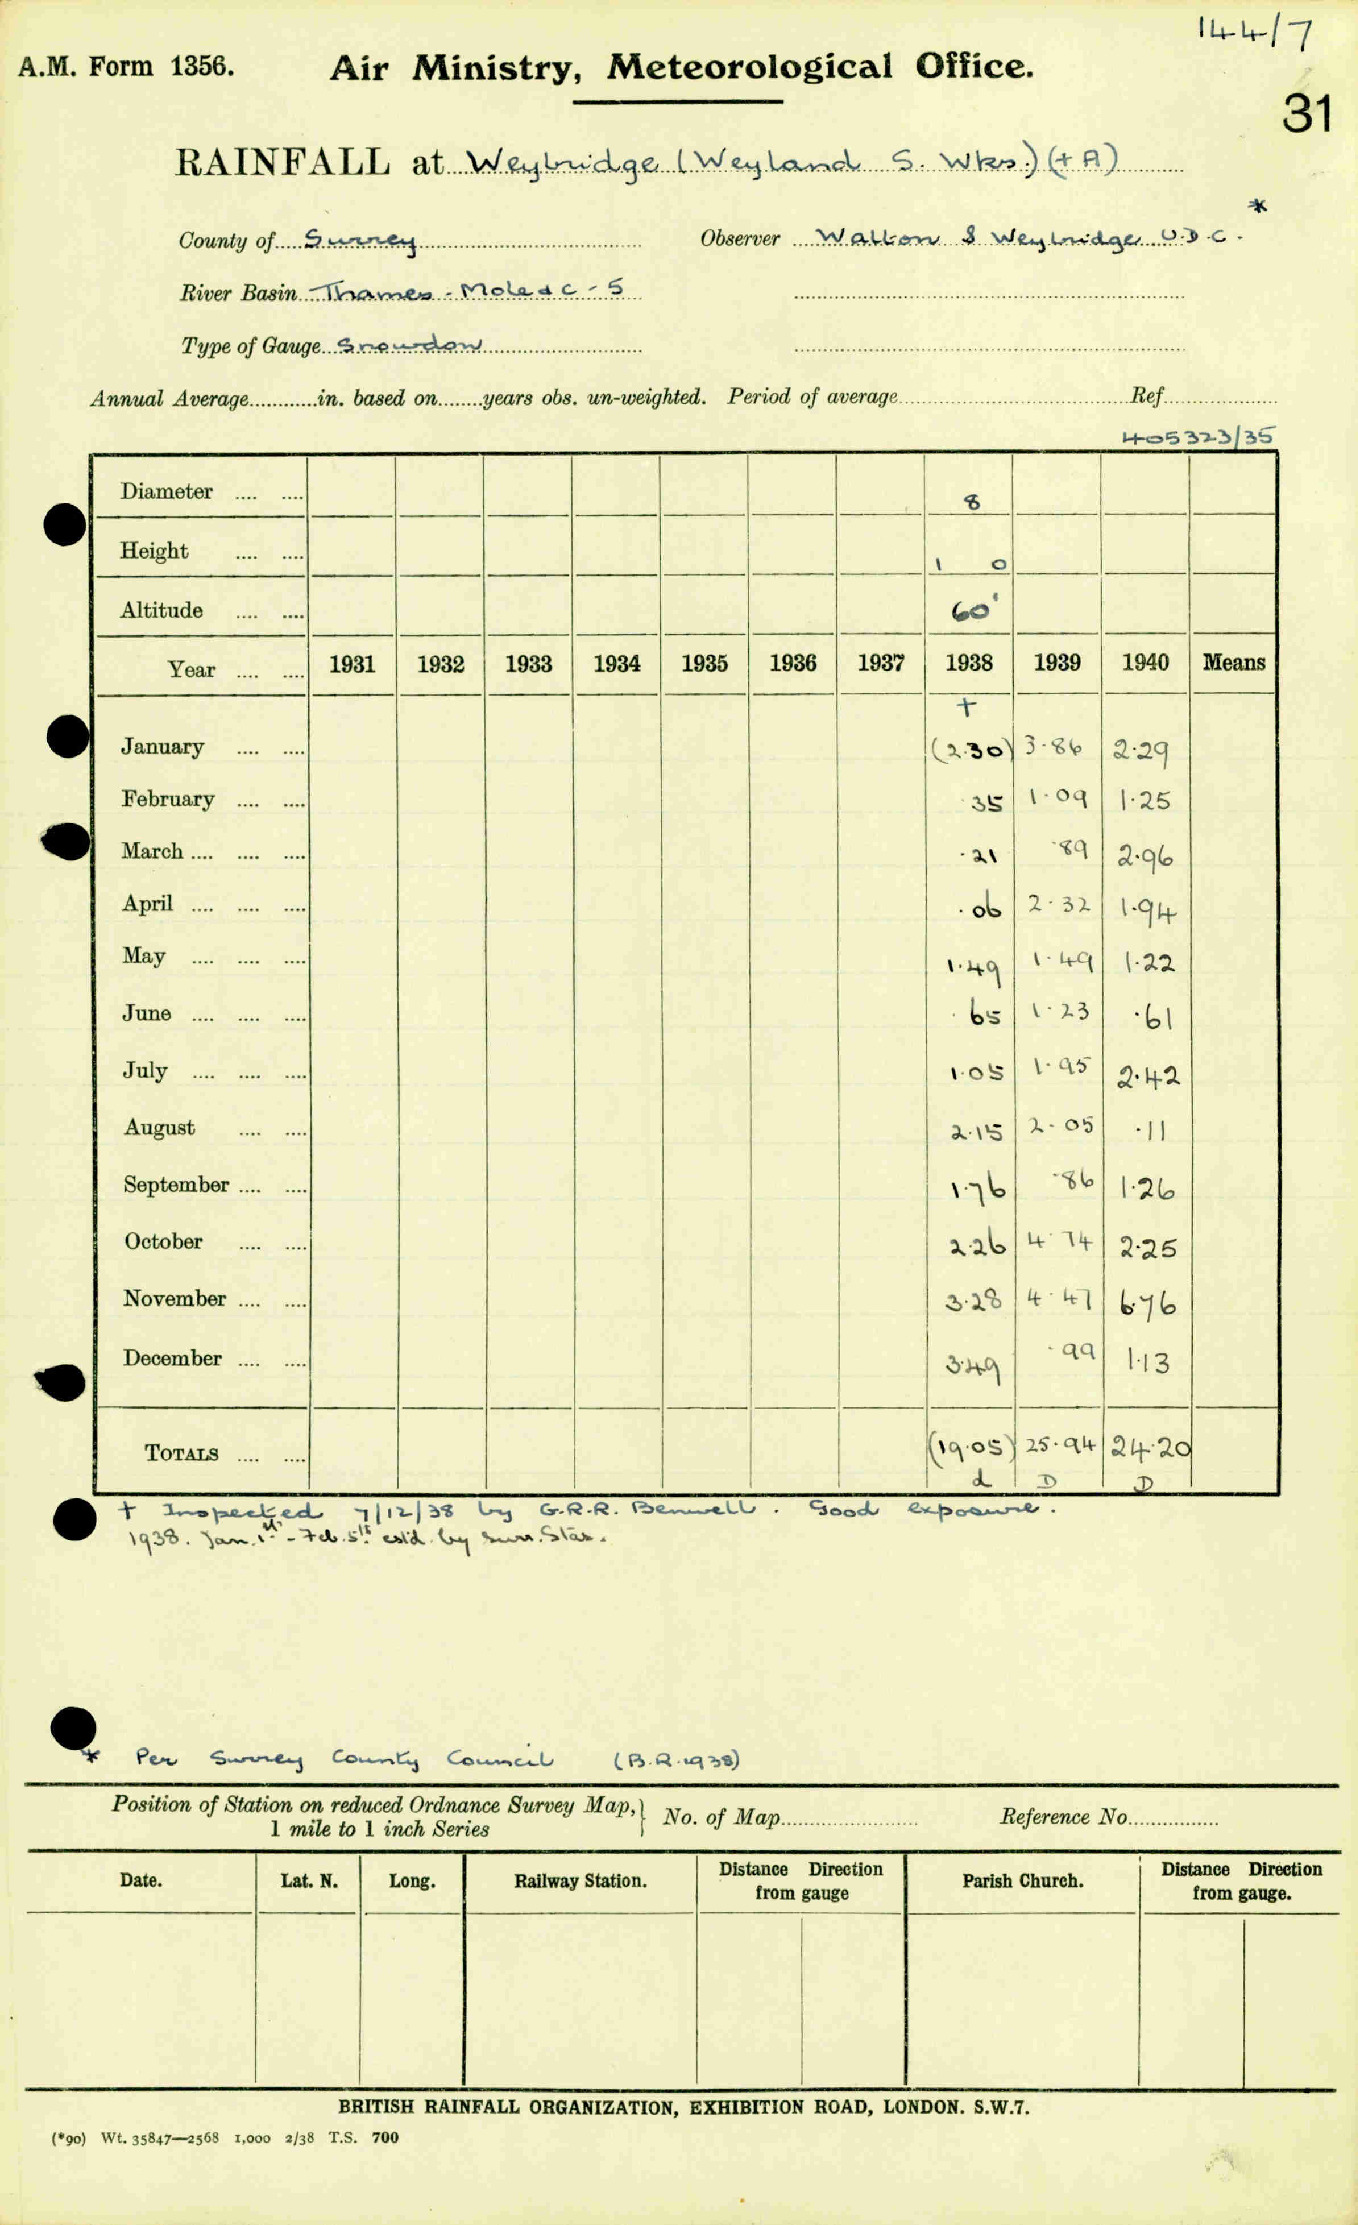 144/7
A.M. Form 1356. Air Ministry, Meteorological Office.
31
RAINFALL at Weybridge (Weyland S. Wks.) (+ A)
*
County of Surrey Observer Walton & Weybridge U.D.C.
River Basin Thames - Mole &c - S
Type of Gauge Snowdon
Annual Average............in. based on........years obs. un-weighted. Period of average Ref.
405323/35
Diameter .... .... 8
Height .... .... 1 0
Altitude .... .... 60'
Year .... .... 1931 1932 1933 1934 1935 1936 1937 1938 1939 1940 Means
†
January .... .... (2.30) 3.86 2.29
February .... .... .35 1.09 1.25
March .... .... .... .21 .89 2.96
April .... .... .... .06 2.32 1.94
May .... .... .... 1.49 1.49 1.22
June .... .... .... .65 1.23 .61
July .... .... .... 1.05 1.95 2.42
August .... .... 2.15 2.05 .11
September .... .... 1.76 .86 1.26
October .... .... 2.26 4.74 2.25
November .... .... 3.28 4.47 6.76
December .... .... 3.49 .99 1.13
TOTALS .... .... (19.05) 25.94 24.20
d D D
† Inspected 7/12/38 by G.R.R. Benwell. Good exposure.
1938. Jan. 1st - Feb. 5th est'd. by surr. Stas.
* Per Surrey County Council (B.R. 1938)
Position of Station on reduced Ordnance Survey Map, } No. of Map Reference No.
1 mile to 1 inch Series
Date. Lat. N. Long. Railway Station. Distance Direction from gauge Parish Church. Distance Direction from gauge.
BRITISH RAINFALL ORGANIZATION, EXHIBITION ROAD, LONDON. S.W.7.
(*90) Wt. 35847—2568 1,000 2/38 T.S. 700